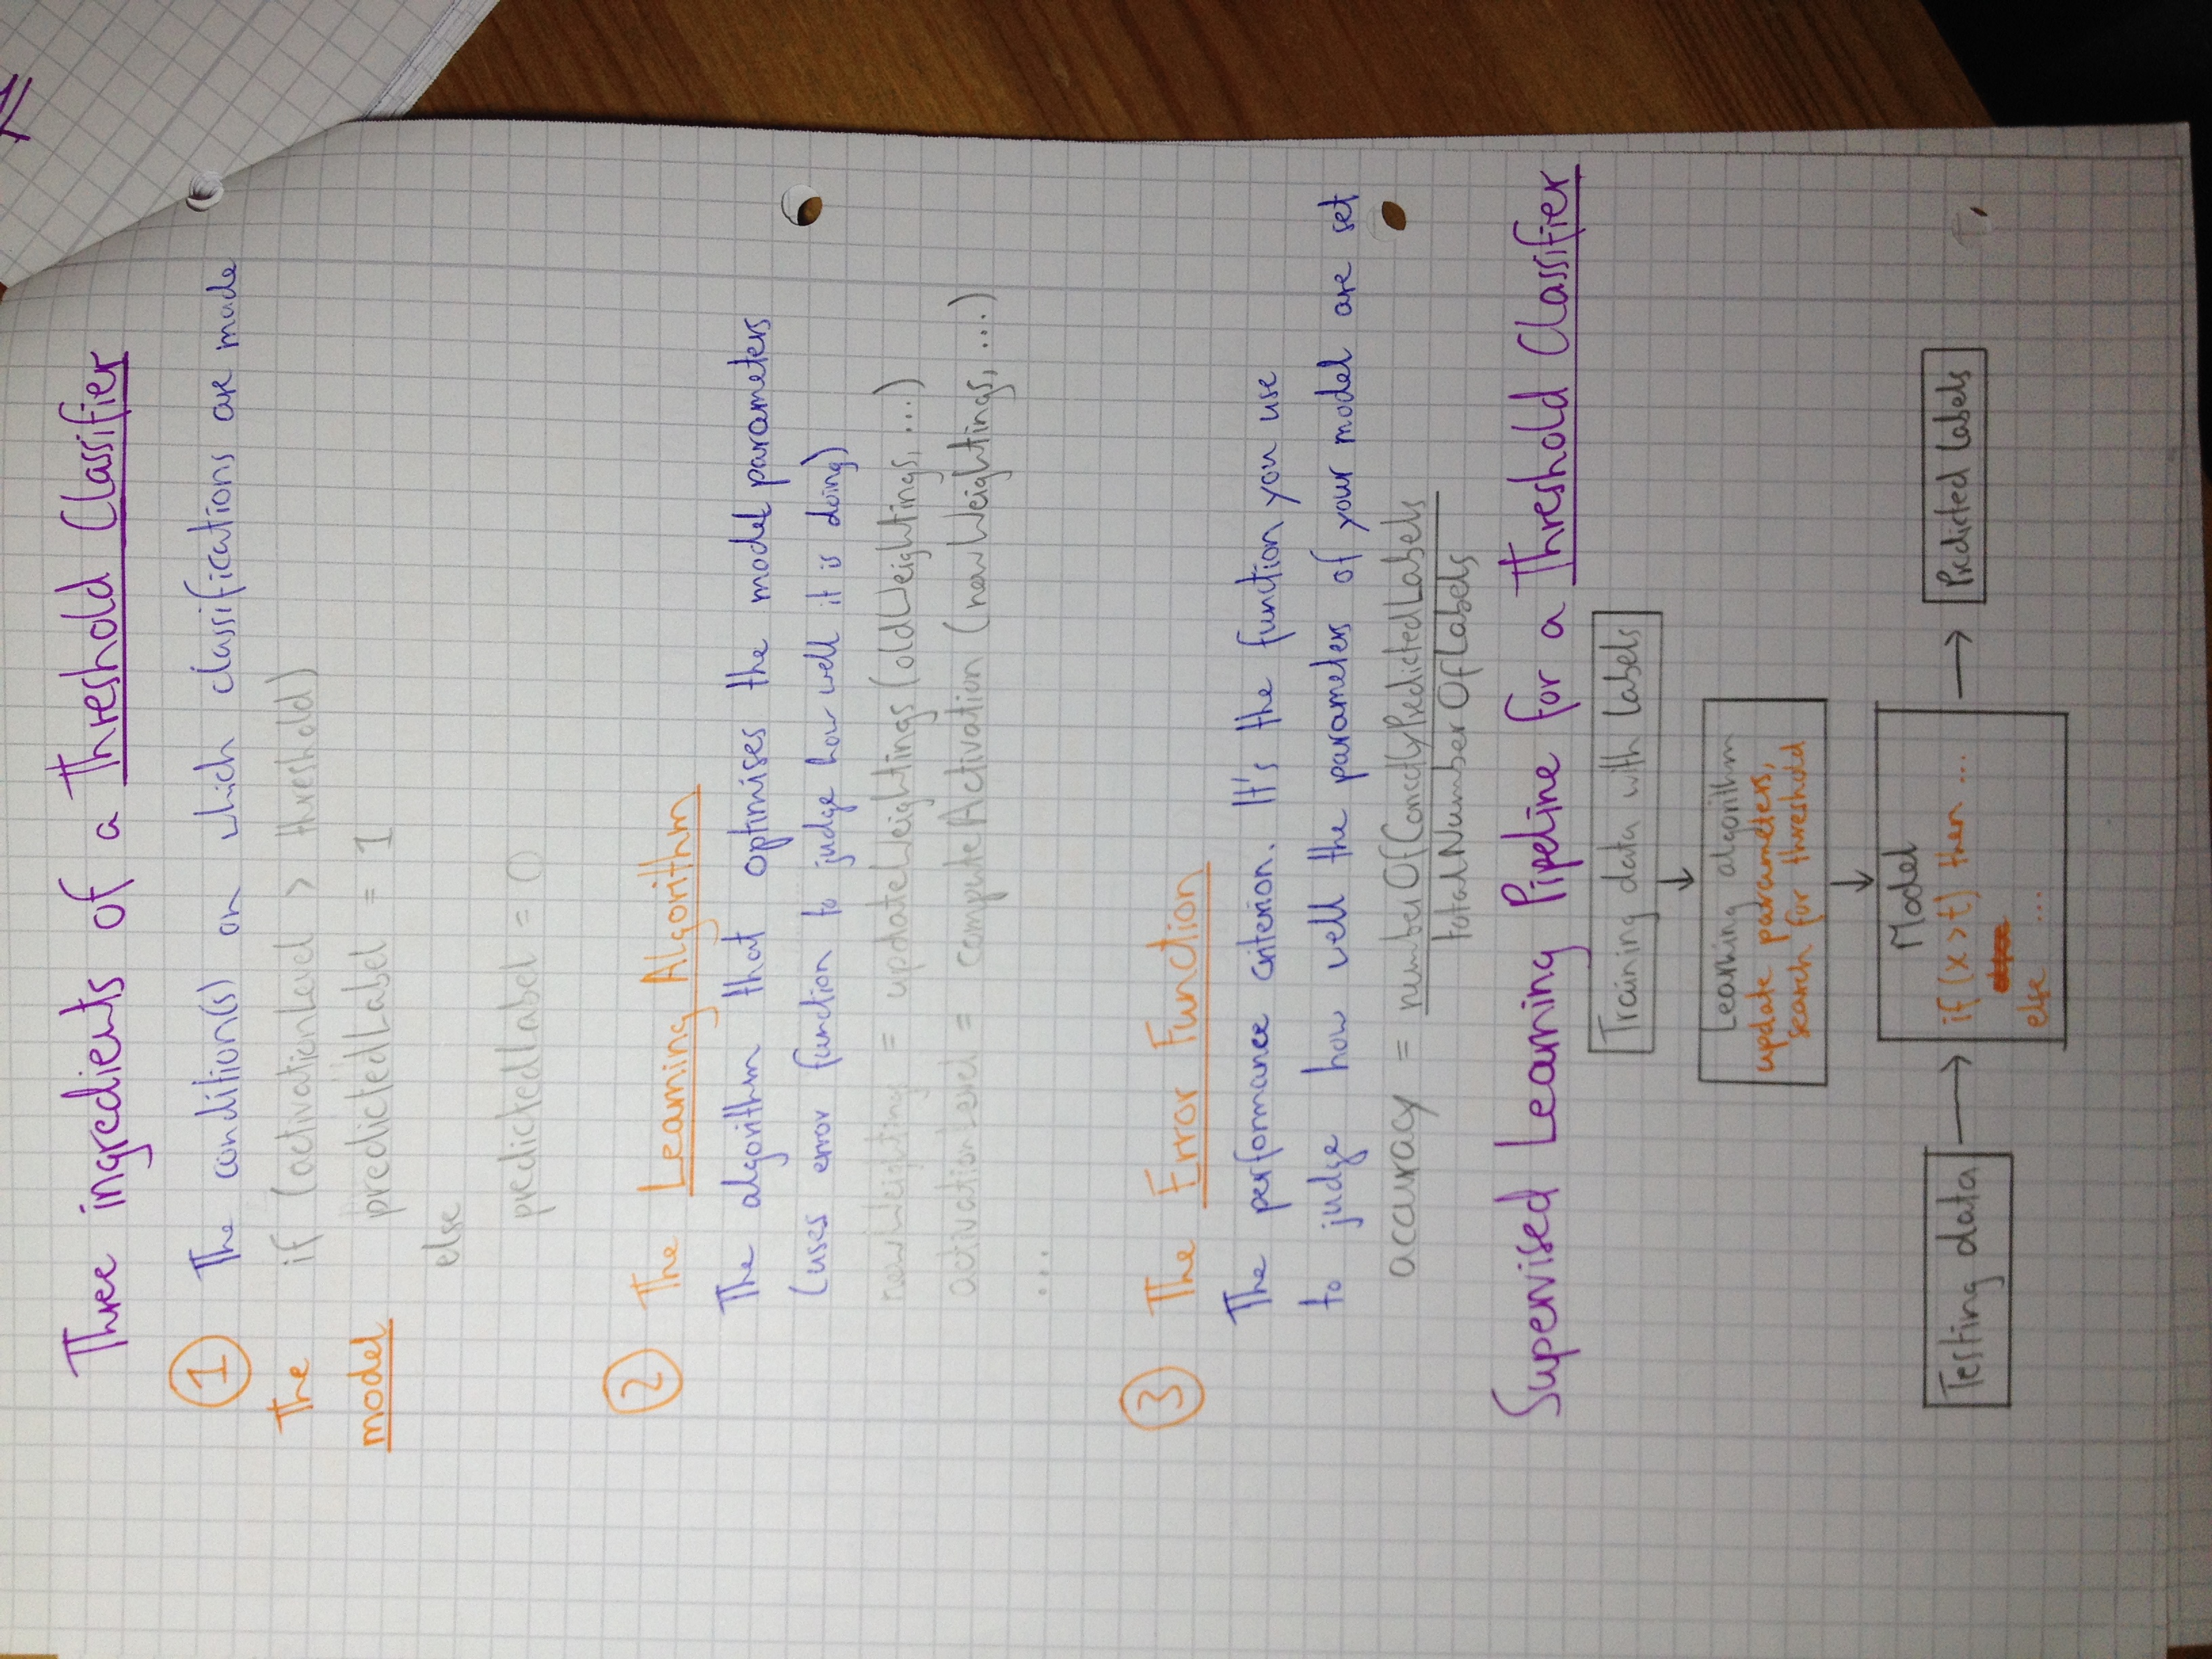 Three ingredients of a Threshold Classifier
1 The condition(s) on which classifications are made
The if (activationLevel > threshold)
model predictedLabel = 1
else
predictedLabel = 0
2 The Learning Algorithm
The algorithm that optimises the model parameters
(uses error function to judge how well it is doing)
newWeightings = updateWeightings(oldWeightings, ...)
activationLevel = computeActivation (newWeightings, ...)
...
3 The Error Function
The performance criterion. It's the function you use
to judge how well the parameters of your model are set
accuracy = numberOfCorrectlyPredictedLabels
totalNumberOfLabels
Supervised Learning Pipeline for a Threshold Classifier
Training data with labels
Learning algorithm
update parameters,
search for threshold
Model
Testing data
if (x > t) then ...
else ...
Predicted labels